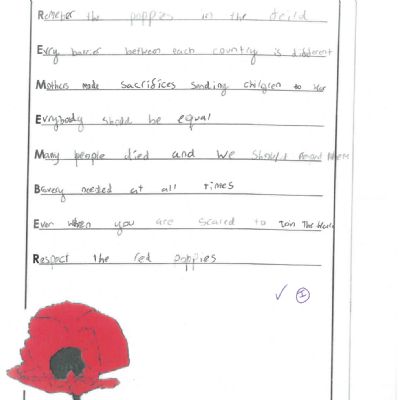 Remeber the poppies in the feild
Evry barrier between each country is different
Mothers made sacrifices sending children to war
Evrybody should be equal
Many people died and we should them
Bravery needed at all times
Ever when you are scared to Join The
Respect the red poppies
I